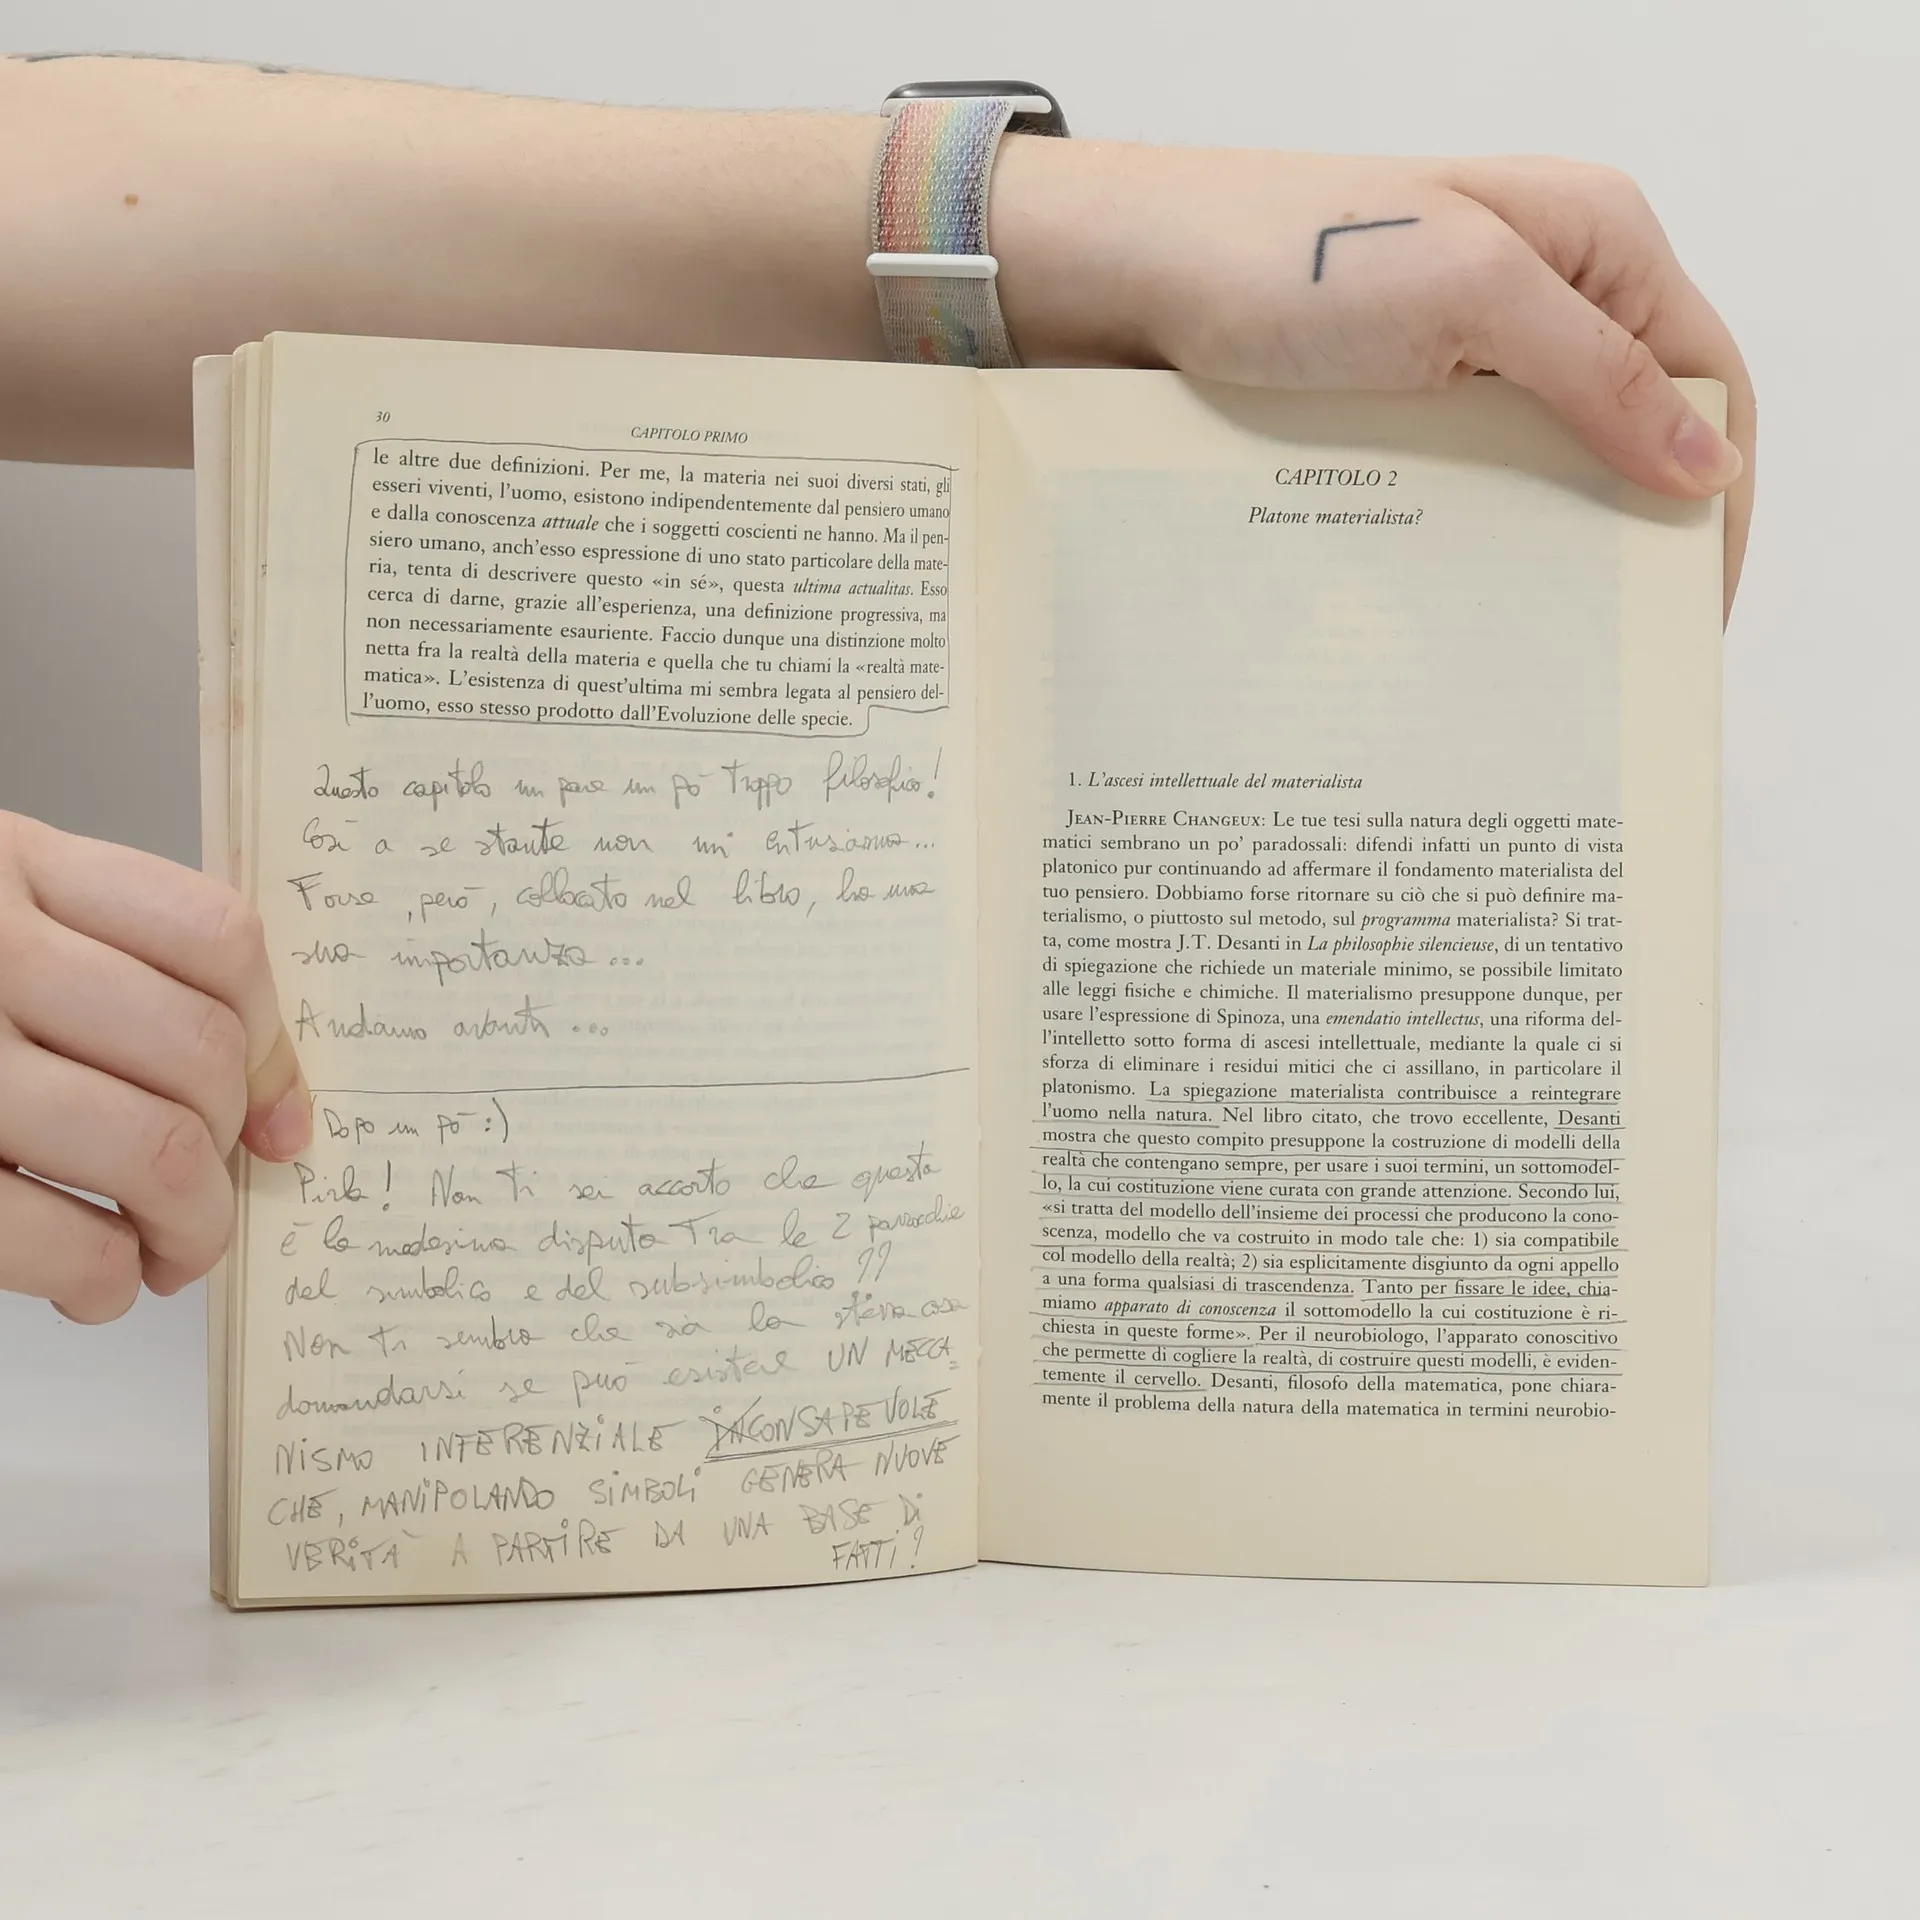 30
CAPITOLO PRIMO
le altre due definizioni. Per me, la materia nei suoi diversi stati, gli
esseri viventi, l'uomo, esistono indipendentemente dal pensiero umano
e dalla conoscenza attuale che i soggetti coscienti ne hanno. Ma il pen-
siero umano, anch'esso espressione di uno stato particolare della mate-
ria, tenta di descrivere questo «in sé», questa ultima actualitas. Esso
cerca di darne, grazie all'esperienza, una definizione progressiva, ma
non necessariamente esauriente. Faccio dunque una distinzione molto
netta fra la realtà della materia e quella che tu chiami la «realtà mate-
matica». L'esistenza di quest'ultima mi sembra legata al pensiero del-
l'uomo, esso stesso prodotto dall'Evoluzione delle specie.
Questo capitolo mi pare un pò troppo filosofico!
Così a se stante non mi entusiasma...
Forse, però, collocato nel libro, ha una
sua importanza...
Andiamo avanti...
(Dopo un pò :)
Pirla! Non ti sei accorto che questa
è la medesima disputa tra le 2 parrocchie
del simbolico e del subsimbolico ??
Non ti sembra che sia la stessa cosa
domandarsi se può esistere UN MECCA=
NISMO INFERENZIALE INCONSAPEVOLE
CHE, MANIPOLANDO SIMBOLI GENERA NUOVE
VERITA' A PARTIRE DA UNA BASE DI
FATTI?
CAPITOLO 2
Platone materialista?
1. L'ascesi intellettuale del materialista
JEAN-PIERRE CHANGEUX: Le tue tesi sulla natura degli oggetti mate-
matici sembrano un po' paradossali: difendi infatti un punto di vista
platonico pur continuando ad affermare il fondamento materialista del
tuo pensiero. Dobbiamo forse ritornare su ciò che si può definire ma-
terialismo, o piuttosto sul metodo, sul programma materialista? Si trat-
ta, come mostra J.T. Desanti in La philosophie silencieuse, di un tentativo
di spiegazione che richiede un materiale minimo, se possibile limitato
alle leggi fisiche e chimiche. Il materialismo presuppone dunque, per
usare l'espressione di Spinoza, una emendatio intellectus, una riforma del-
l'intelletto sotto forma di ascesi intellettuale, mediante la quale ci si
sforza di eliminare i residui mitici che ci assillano, in particolare il
platonismo. La spiegazione materialista contribuisce a reintegrare
l'uomo nella natura. Nel libro citato, che trovo eccellente, Desanti
mostra che questo compito presuppone la costruzione di modelli della
realtà che contengano sempre, per usare i suoi termini, un sottomodel-
lo, la cui costituzione viene curata con grande attenzione. Secondo lui,
«si tratta del modello dell'insieme dei processi che producono la cono-
scenza, modello che va costruito in modo tale che: 1) sia compatibile
col modello della realtà; 2) sia esplicitamente disgiunto da ogni appello
a una forma qualsiasi di trascendenza. Tanto per fissare le idee, chia-
miamo apparato di conoscenza il sottomodello la cui costituzione è ri-
chiesta in queste forme». Per il neurobiologo, l'apparato conoscitivo
che permette di cogliere la realtà, di costruire questi modelli, è eviden-
temente il cervello. Desanti, filosofo della matematica, pone chiara-
mente il problema della natura della matematica in termini neurobio-